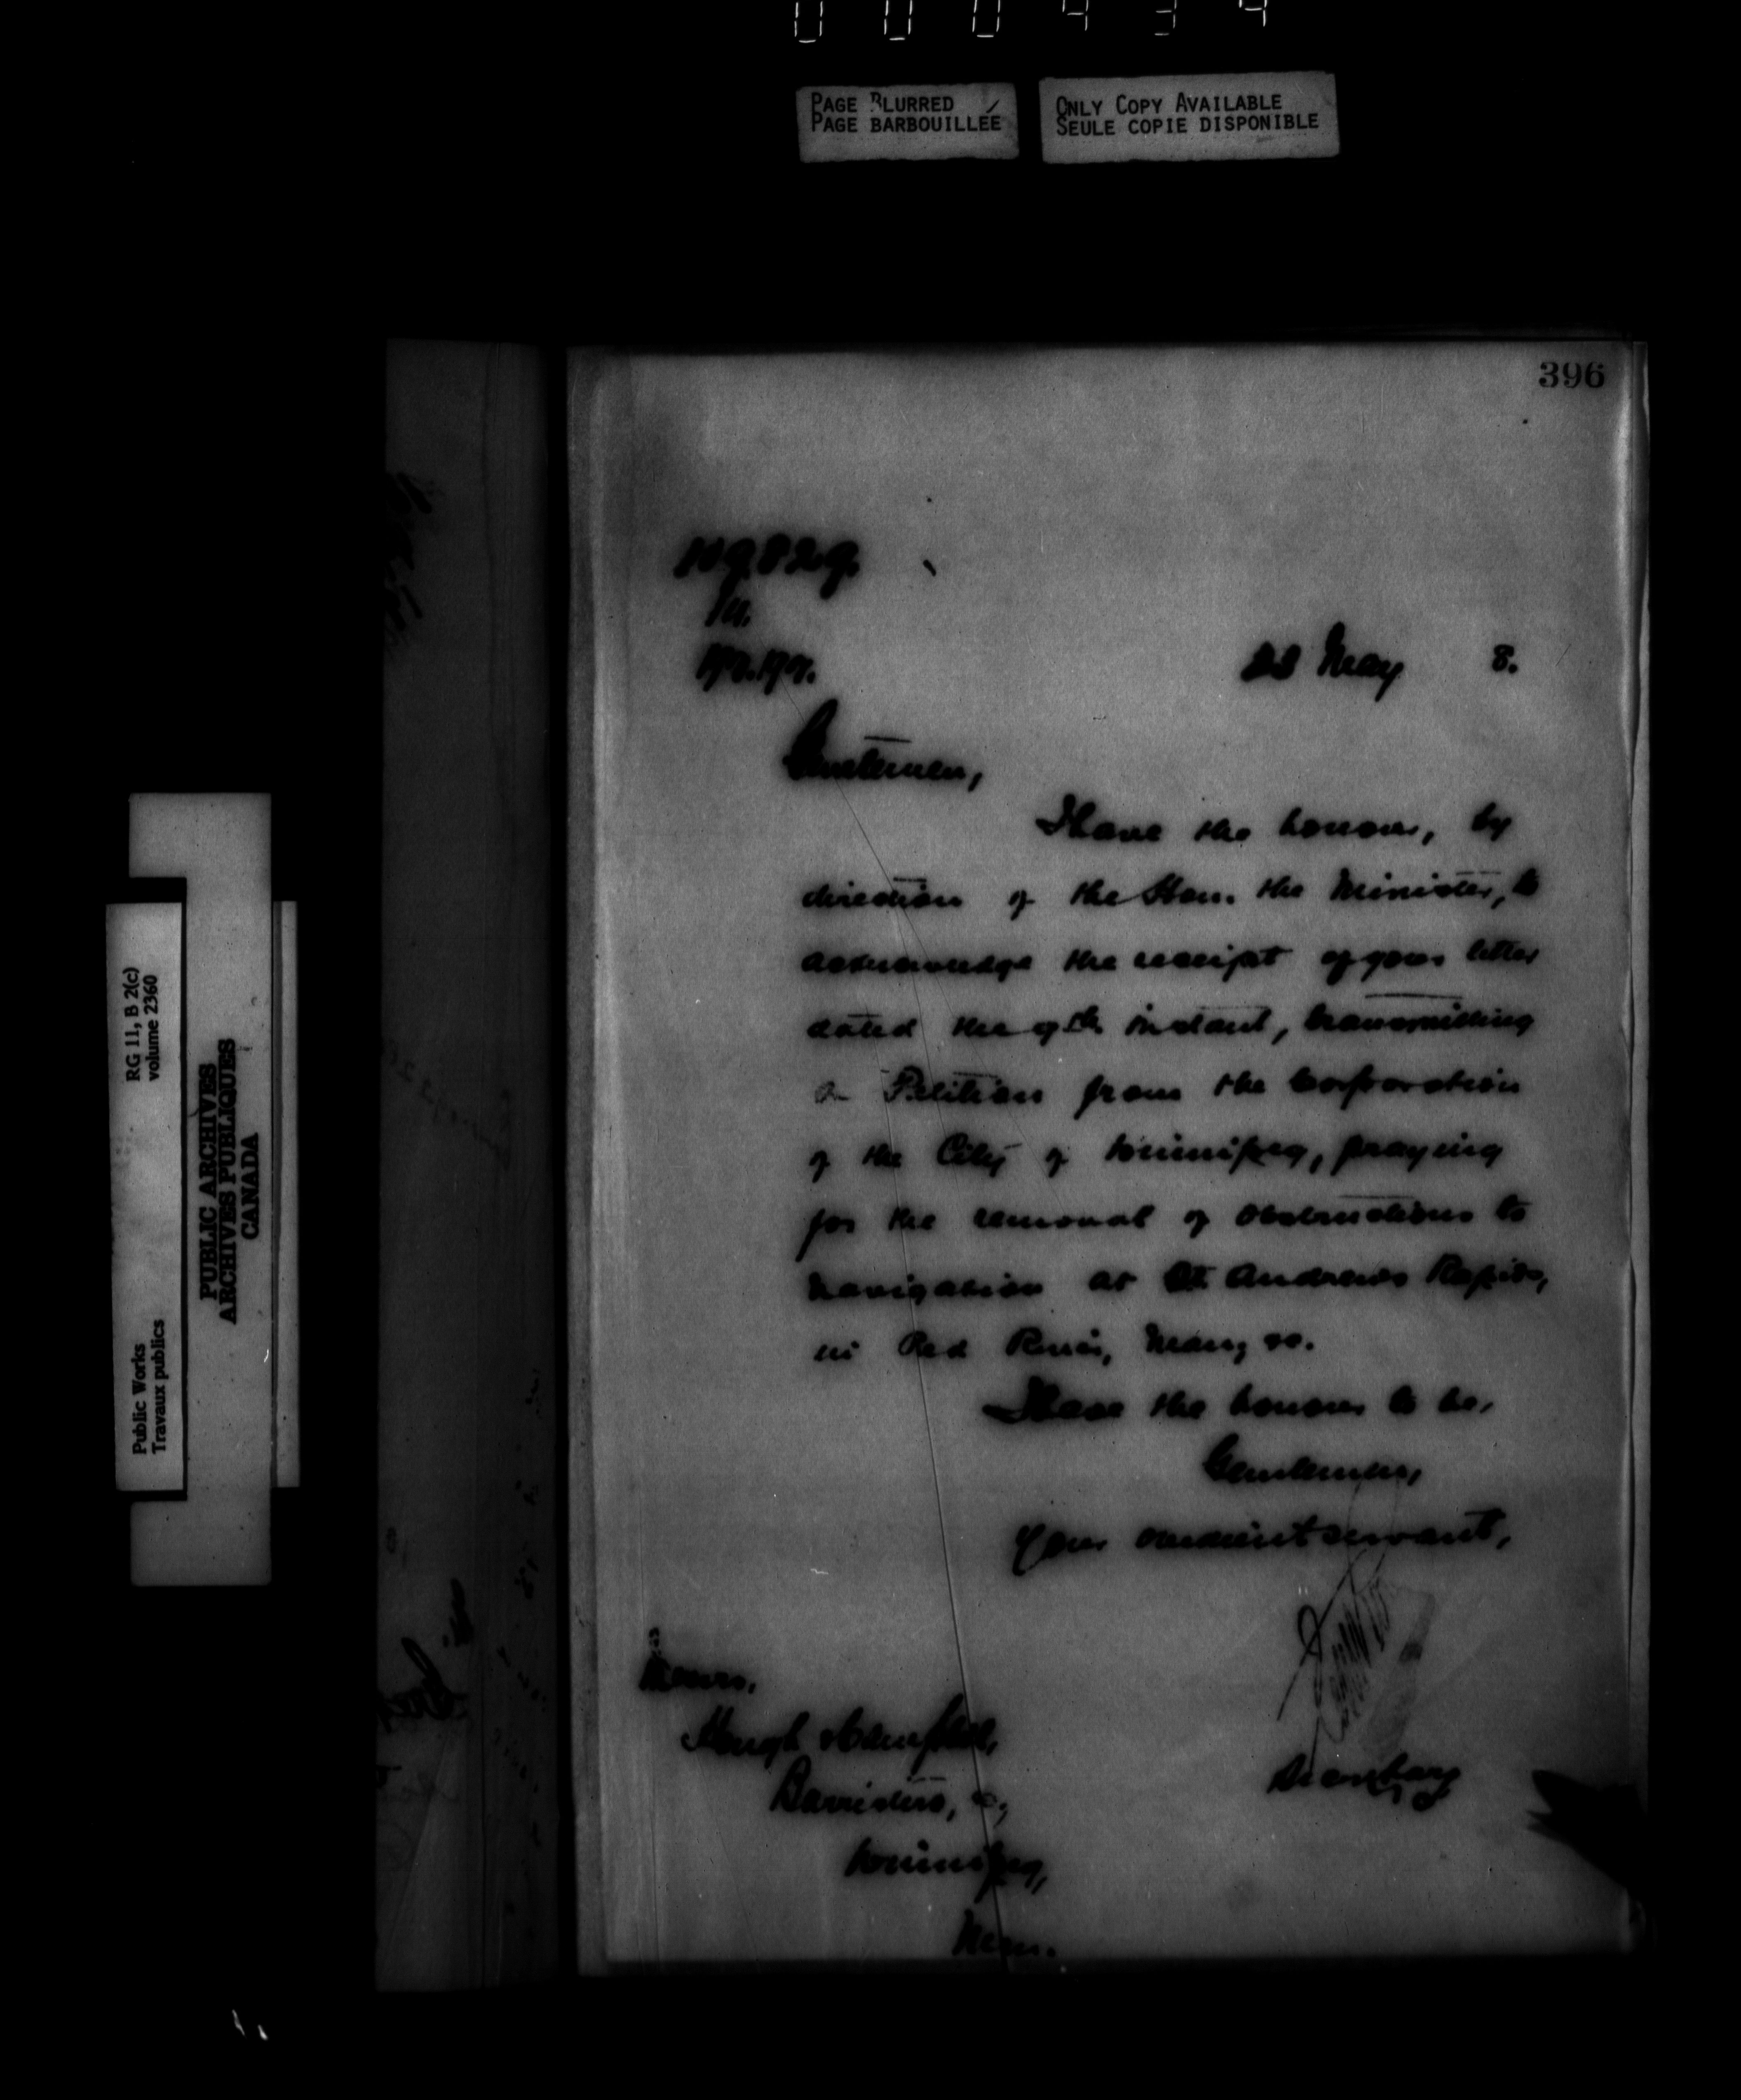 000434
PAGE BLURRED
PAGE BARBOUILLÉE
ONLY COPY AVAILABLE
SEULE COPIE DISPONIBLE
396
23 May 8.
Gentlemen,
I have the honour, by
direction of the Hon. the Minister, to
acknowledge the receipt of your letter
dated the 9th instant, transmitting
a Petition from the Corporation
of the City of Winnipeg, praying
for the removal of obstructions to
navigation at St. Andrews Rapids,
in Red River, Man; &c.
I have the honour to be,
Gentlemen,
Your obedient servant,
Secretary
Messrs.
Hough & Campbell,
Barristers, &c;
Winnipeg,
Man.
RG 11, B 2(c)
volume 2360
PUBLIC ARCHIVES
ARCHIVES PUBLIQUES
CANADA
Public Works
Travaux publics